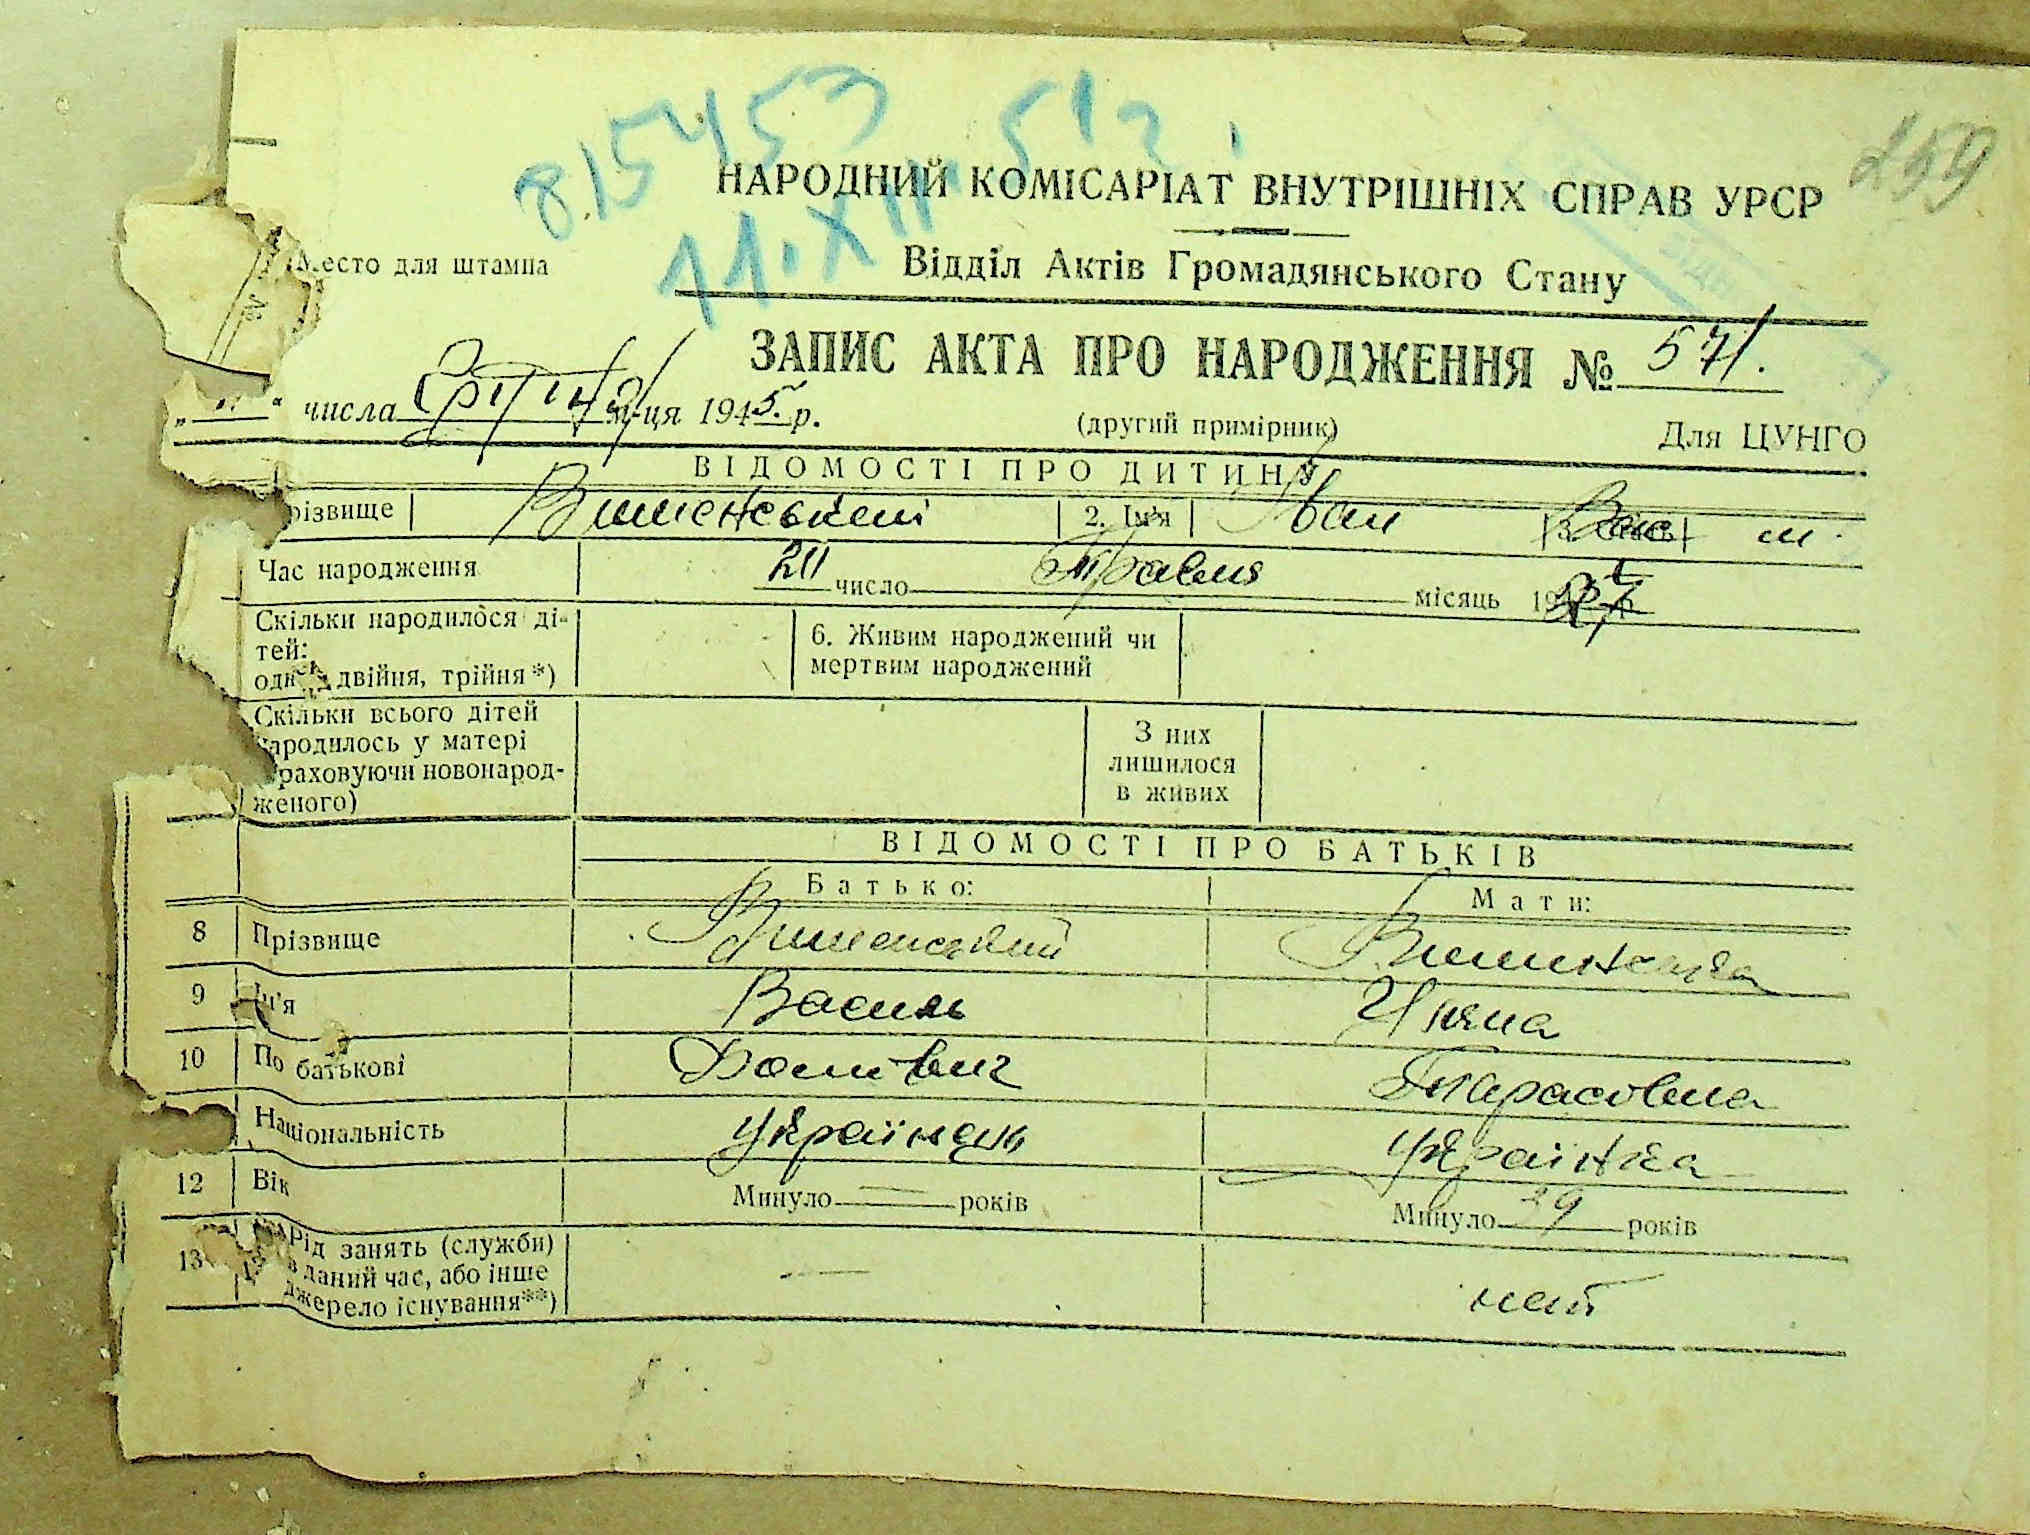 815453 512
259
НАРОДНИЙ КОМІСАРІАТ ВНУТРІШНІХ СПРАВ УРСР
11.XII
Место для штампа
Відділ Актів Громадянського Стану
ЗАПИС АКТА ПРО НАРОДЖЕННЯ № 571.
числа м-ця 1945 р.
(другий примірник)
Для ЦУНГО
ВІДОМОСТІ ПРО ДИТИНУ
різвище Вишенський 2. Ім'я Іван
Час народження число Травня місяць
Скільки народилося ді-
тей:
двійня, трійня*)
6. Живим народжений чи
мертвим народжений
Скільки всього дітей
народилось у матері
раховуючи новонарод-
женого)
З них
лишилося
в живих
ВІДОМОСТІ ПРО БАТЬКІВ
Батько: Мати:
8 Прізвище Вишенський
9 Ім'я Василь
10 По батькові Тарасовна
Національність Українець Українка
12 Вік Минуло — років Минуло 29 років
13 Рід занять (служби)
в даний час, або інше
джерело існування**)
— нет